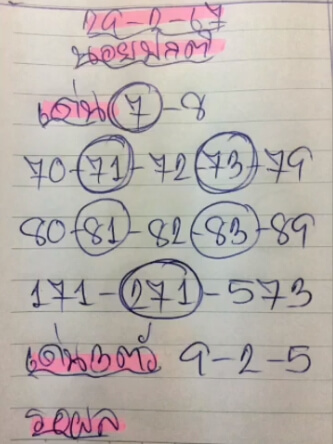 29-2-67
น้อยมิลตี้
เด่น 7-8
70-71-72-73-79
80-81-82-83-89
171-271-573
เด่น3ตัว 9-2-5
รอผล